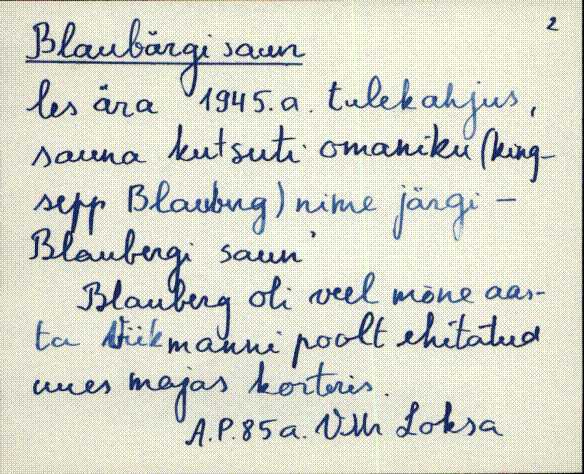 2
Blaubärgi saun
les ära 1945.a. tulekahjus,
sauna kutsuti omaniku (king-
sepp Blauberg) nime järgi –
Blaubergi saun'
Blauberg oli veel mõne aas-
ta Viikmanni poolt ehitatud
uues majas korteris.
A.P. 85 a. Loksa